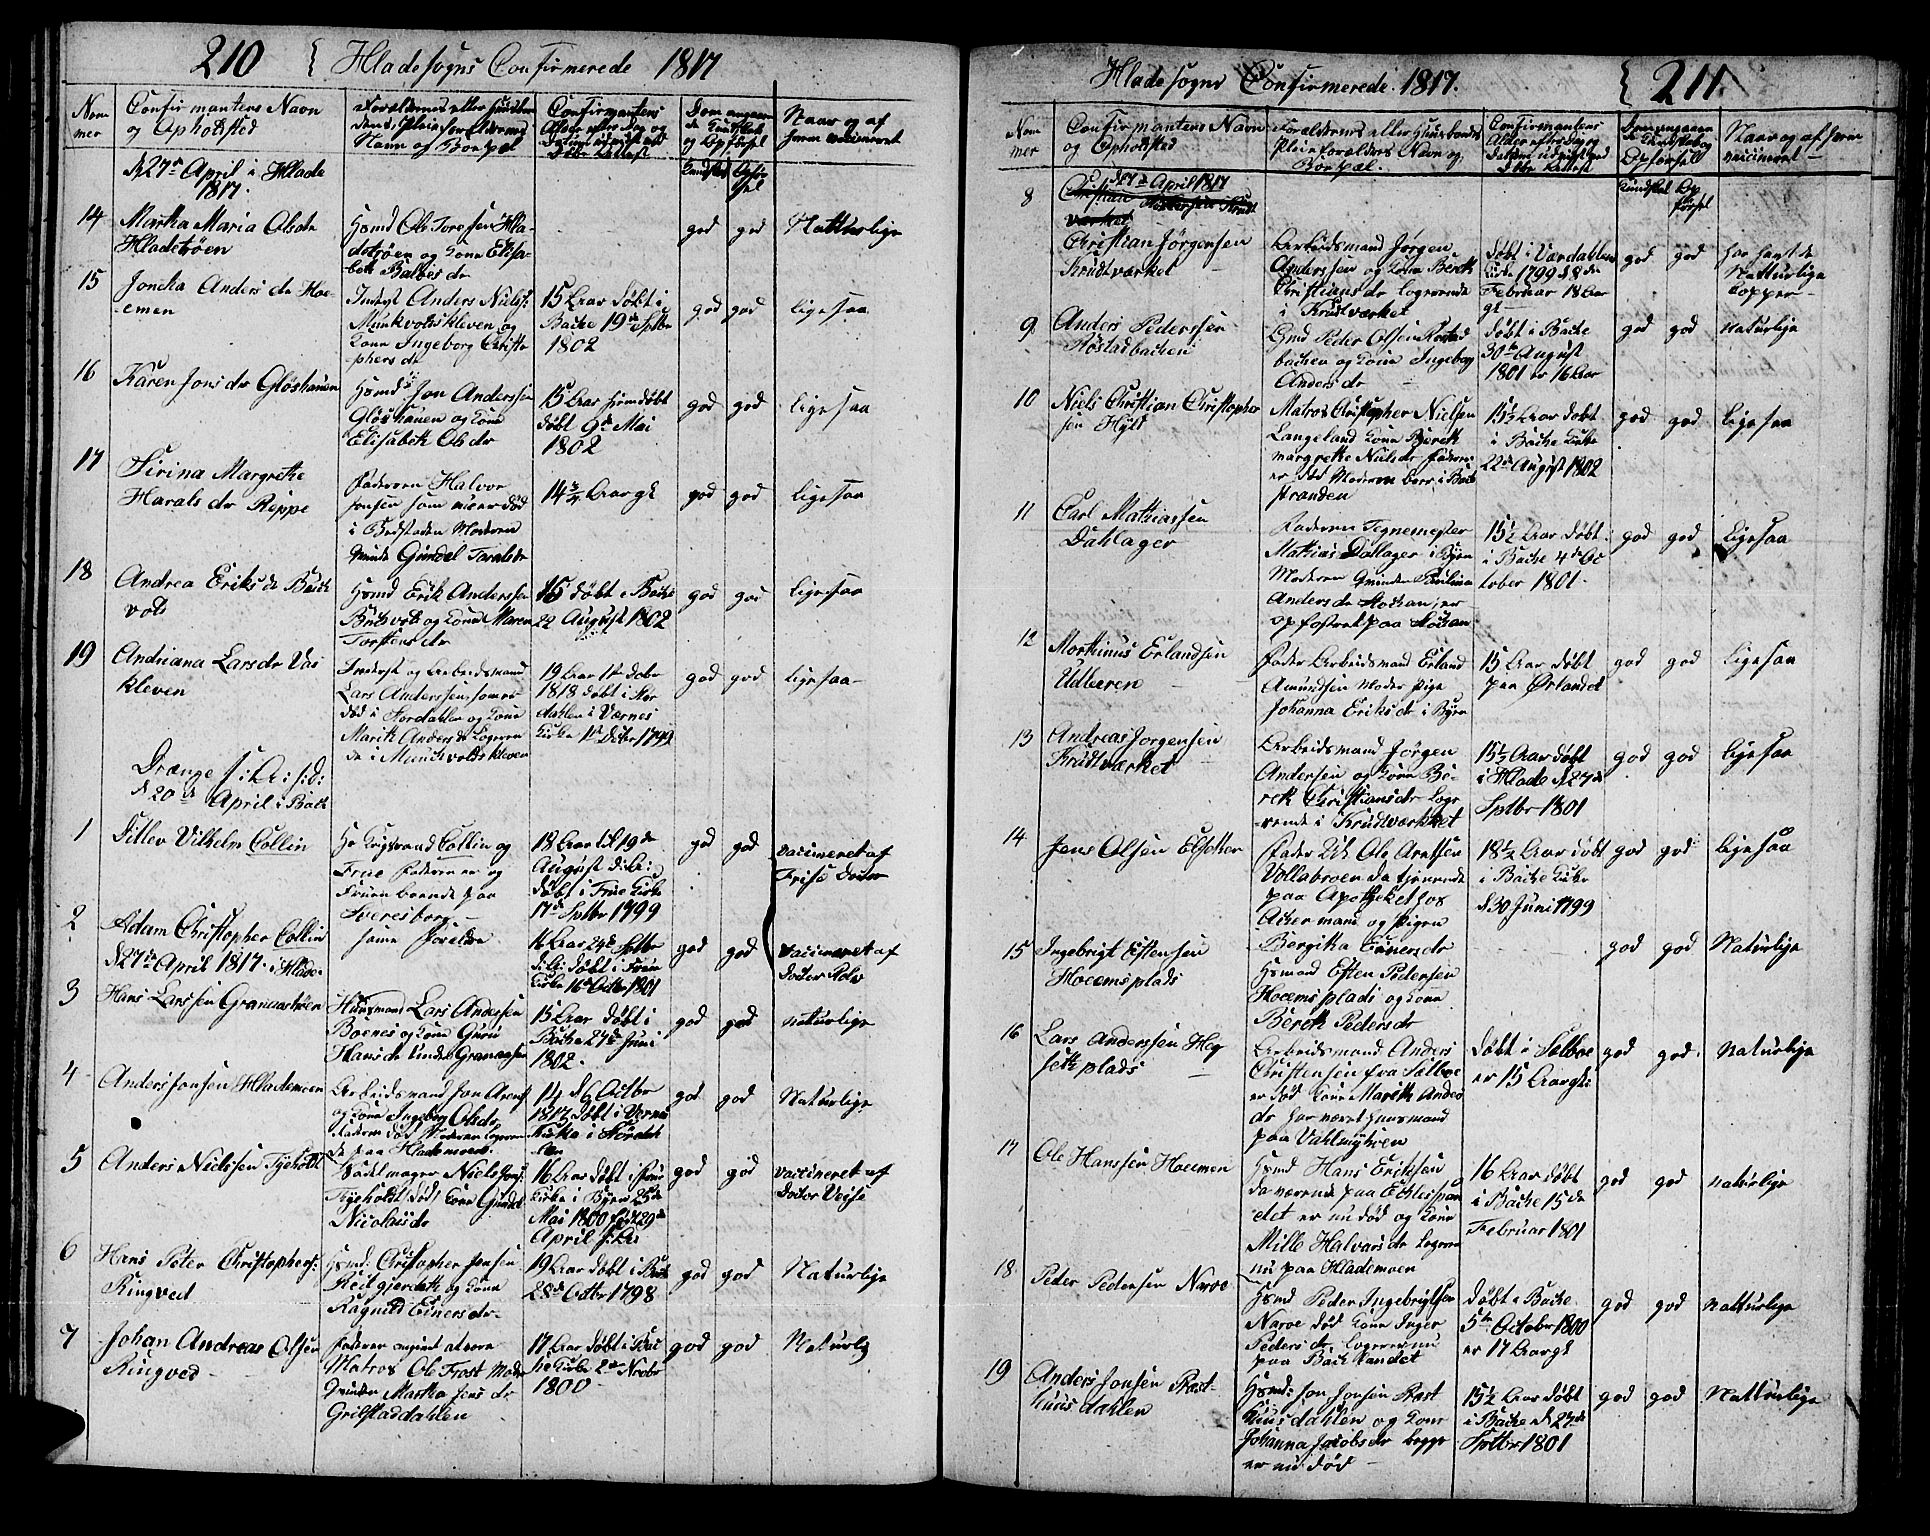 210 Hladesogns Confirmerede 1817
Nom
mer
Confirmantens Navn
og Opholdsted
Forældrenes eller Huusbon
dens, Pleieforældrenes
Navn og Boepæl
Confirmantens
Alder efter Dag og
Døbte Attest
Dom angaaen
de Kundskab
og Opførsel
Naar og af
hvem vaccineret
Kundskab Opfør
sel
d 27de April i Hlade
1817.
14 Martha Maria Olsdr
Hladetrøen
Hsmd Ole Toresen Hla-
detrøen og Kone Elisa-
beth Balbersdr
god god Natturlige
15 Joncha Andersdr Hoe-
emen
Inderst Anders Nielss:
Munkvoldskleven og
Kone Ingeborg Christo-
phersdr
15 Aar døbt i
Bache 19de Sptbr
1802
god god ligesaa
16 Karen Jonsdr Gløshauen
Hsmd: Jon Anderssen
Gløshauen og Kone
Elisabeth Olsdr
15 Aar hiemdøbt
døbt 9de Mai
1802
god god ligesaa
17 Sirina Margrethe
Haralsdr Reppe
Faderen Halvor
Jonsen som nu er død
i Bodstaden Moderen
Qvinde Gundel Taralsdr
14 3/4 Aar gl
god god ligesaa
18 Andrea Eriksdr Bach
vold
Hsmd Erik Anderssen
Bachvold og Kone Maren
Torstensdr
15 døbt i Bache
22 August 1802
god god ligesaa
19 Andriana Larsdr Vas
kleven
Inderst og Arbeidsmand
Lars Anderssen, som er
død i Stordahlen og Kone
Marith Andersdr Logeren
de i Munchvoldskleven
19 Aar 1ste Dcbr
1818 døbt i Stør
dahlen i Værnes
Kirke 1ste Dcbr 1799
god god ligesaa
Drænge
d 20de April i Bach
1 Ditlev Vilhelm Collin
Hr Krigsraad Collin og
Frue Faderen er og
Fruen boende paa
Sverresborg
18 Aar til 19de
August
døbt i Frue Kirke
17de Sptbr 1799
god god vaccineret af
Frise Doctor
2 Adam Christopher Collin
samme Forældre
16 Aar 24de Sptbr
døbt i Frue
Kirke 16de Octbr 1801
god god vaccineret af
Doctor Rolv
d 27de April 1817. i Hlade
3 Hans Larssen Granaastrøen
Huusmand Lars Andersen
Boenes og Kone Guru
Hansdr under Granaasen
15 Aar døbt i
Bache 27de Juni
1802.
god god naturlige
4 Anders Jonsen Hlademoen
Arbeidsmand Jon Arents
og Kone Ingeborg Olsdr
Faderen død Moderen logeren
de paa Hlademoen
14 d 6 Octbr
1817, døbt i Værnes
Kirke i Størdah
len
god god Naturlige
5 Anders Nielssen Tyeholt
Sadelmager Niels Jons:
Tyeholdt død, Kone Gundel
Nicolaisdr
16 Aar døbt i Frue
Kirke i Byen 25de
Mai 1800 født 29de
April
god god vaccineret af
Doctor Veise
6 Hans Peter Christophers:
Ringved
Hsmd: Christopher Jensen
Reitgjerdet og Kone
Ragnild Einersdr
19 Aar døbt i Bach
28de Octbr 1798
god god Naturlige
7 Johan Andreas Olsen
Ringved
Faderen angivet at være
Matros Ole Frost Moder
Qvinden Martha Jensdr
Grilstaddahlen
17 Aar døbt i Bac
he Kirke 2den Novbr
1800
god god Naturlig
Hlade sogns Confirmerede. 1817. 211.
Nom
mer
Confirmantens Navn
og Opholdsted
Forældrenes eller Huusbondes
Pleieforældrenes Navn og
Boepæl.
Confirmantens
Alder efter Dag og
Døbte Attest
Dom angaaen
de Kundskab og
Opførsel
Naar og af hvem
vaccineret
Kundskab Op
førsel
d 27de April 1817
8 Christian Jørgensen
Krudtværket
Arbeidsmand Jørgen
Anderssen og Kone Bereth
Christiansdr Logerende
i Krudtværket
Døbt i Værdahlens
Kirke 1799 d 8de
Februar 18 Aar
gl
god god har havt de
Natturlige
Kopper
9 Anders Pederssen
Rostadbachen
Hsmd Peder Olsen Rostad
bachen og Kone Ingeborg
Andersdr
døbt i Bache
30te August
1801 er 16 Aar
god god naturlige
10 Niels Christian Christopher
sen Hyld
Matros Christopher Nielsen
Langeland Kone Bereth
Margrethe Nielsdr Faderen
er død Moderen boer i Bach
stranden
15 1/2 Aar døbt
i Bache Kirke
22de August 1802
god god ligesaa
11 Carl Mathiassen
Dahlager
Faderen Tegnemester
Mathias Dallager i Byen
Moderen Qvinden Paulina
Andersdr Stochan, er
opfostret paa Stochan
15 1/2 Aar døbt
i Bache 4de Oc
tober 1801.
god god ligesaa
12 Morthinus Erlandsen
Udbeeren
Fader Arbeidsmand Erland
Amundsen Moder Pige
Johanna Eriksdr i Byen
15 Aar døbt
paa Ørlandet
god god ligesaa
13 Andreas Jørgensen
Krudtværket
Arbeidsmand Jørgen
Andersen og Kone Be-
reth Christiansdr Loge-
rende i Krudtværket
15 1/2 Aar døbt
i Hlade d 27de
Sptbr 1801
god god ligesaa
14 Jens Olsen Elsetter
Fader Ole Arntsen
Vollabroen da tjenende
paa Apotheket hos
Achermand og Pigen
Borgitha Einersdr
18 1/2 Aar døbt
i Bache Kirke
d 30 Juni 1799
god god ligesaa
15 Ingebrigt Estensen
Hoeemsplads
Hsmand Esten Pedersen
Hoeemsplads og Kone
Bereth Pedersdr
god god Naturlige
16 Lars Anderssen Heg
sethplads
Arbeidsmand Anders
Christensen fra Sælboe
er død Kone Marith Anders
dr har været Huusmand
paa Vahlmyhren
døbt i Sælboe
er 15 Aar gl:
god god Naturlige
17 Ole Hanssen Hoeemen
Hsmd Hans Erichsen
da værende paa Echlespan
det er nu død og Kone
Mille Halvarsdr Logeren
nu paa Hlademoen
16 Aar døbt
i Bache 15de
Februar 1801
god god naturlige
18 Peder Pedersen Narve
Hsmd Peder Ingebrigtsen
Narve død Kone Inger
Pedersdr, logerer nu
paa Bachlandet
døbt i Bache
5te October 1800
er 17 Aar gl
god god Natturlige
19 Anders Jonsen Præst-
huusdahlen
Hsmd: Jon Jonsen Præst
huusdahlen og Kone
Johanna Jacobsdr begge
er nu død
15 1/2 Aar døbt
i Bache d 27de
Sptbr 1801
god god Natturlige